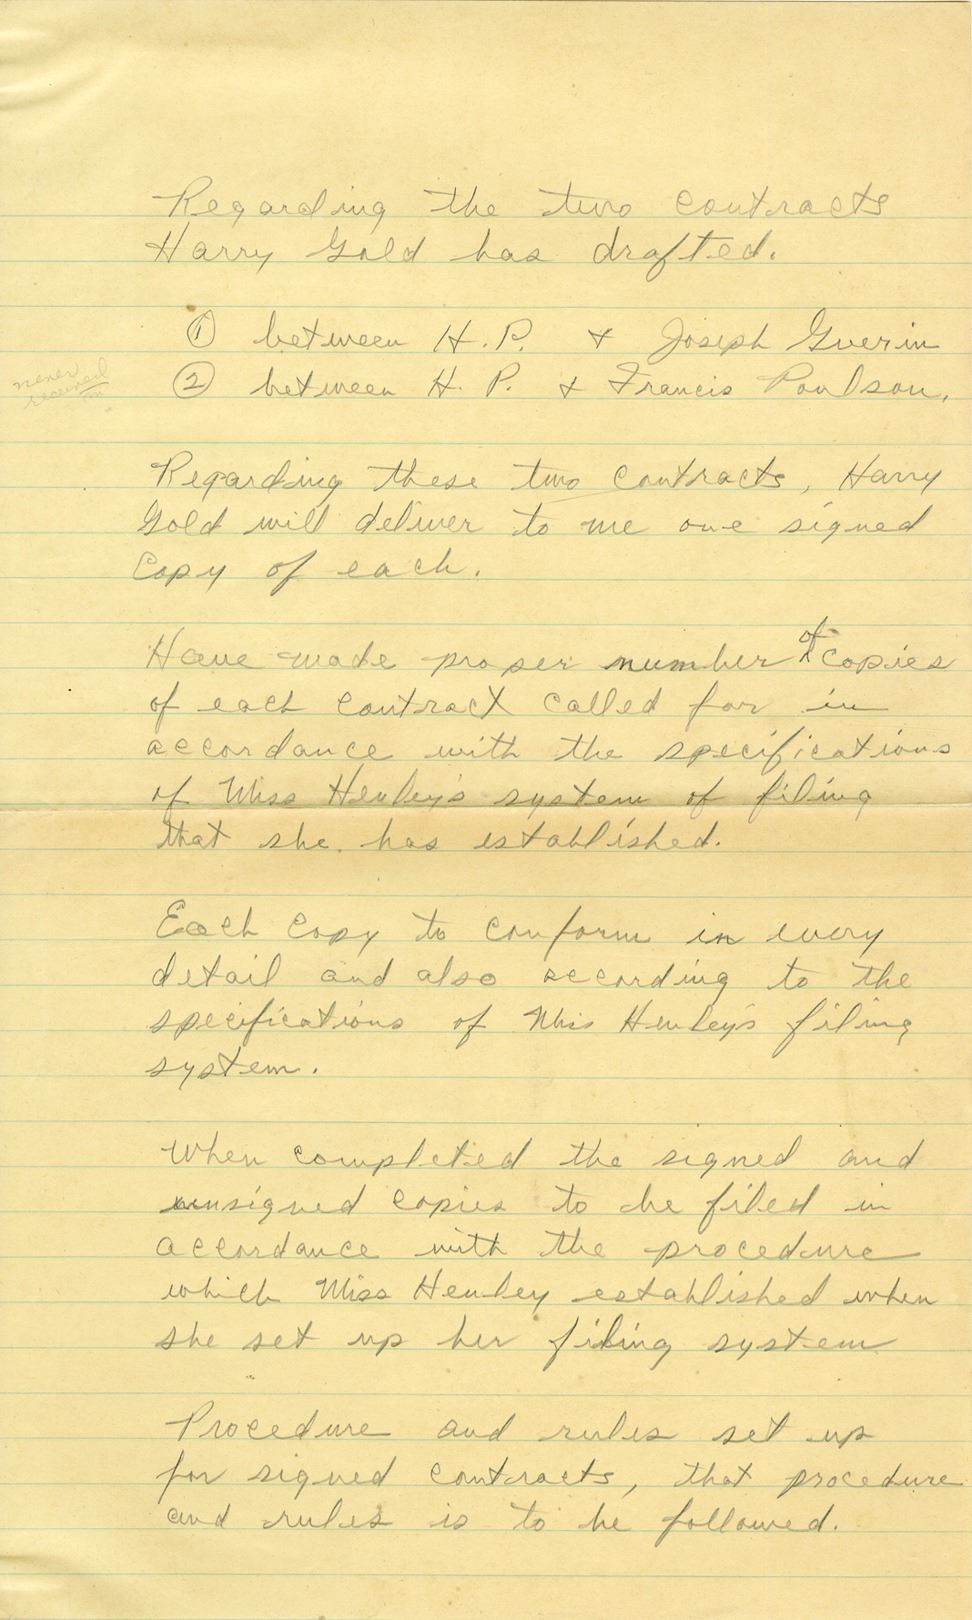 Regarding the two contracts
Harry Gold has drafted.
① between H. P. & Joseph Guerin
never
received
② between H. P. & Francis Poulson.
Regarding these two contracts, Harry
Gold will deliver to me one signed
Copy of each.
Have made proper number of copies
of each contract called for in
accordance with the specifications
of Miss Henley's system of filing
that she has established.
Each Copy to conform in every
detail and also according to the
specifications of Miss Henley's filing
system.
When completed the signed and
unsigned copies to be filed in
accordance with the procedure
which Miss Henley established when
she set up her filing system
Procedure and rules set up
for signed contracts, that procedure
and rules is to be followed.